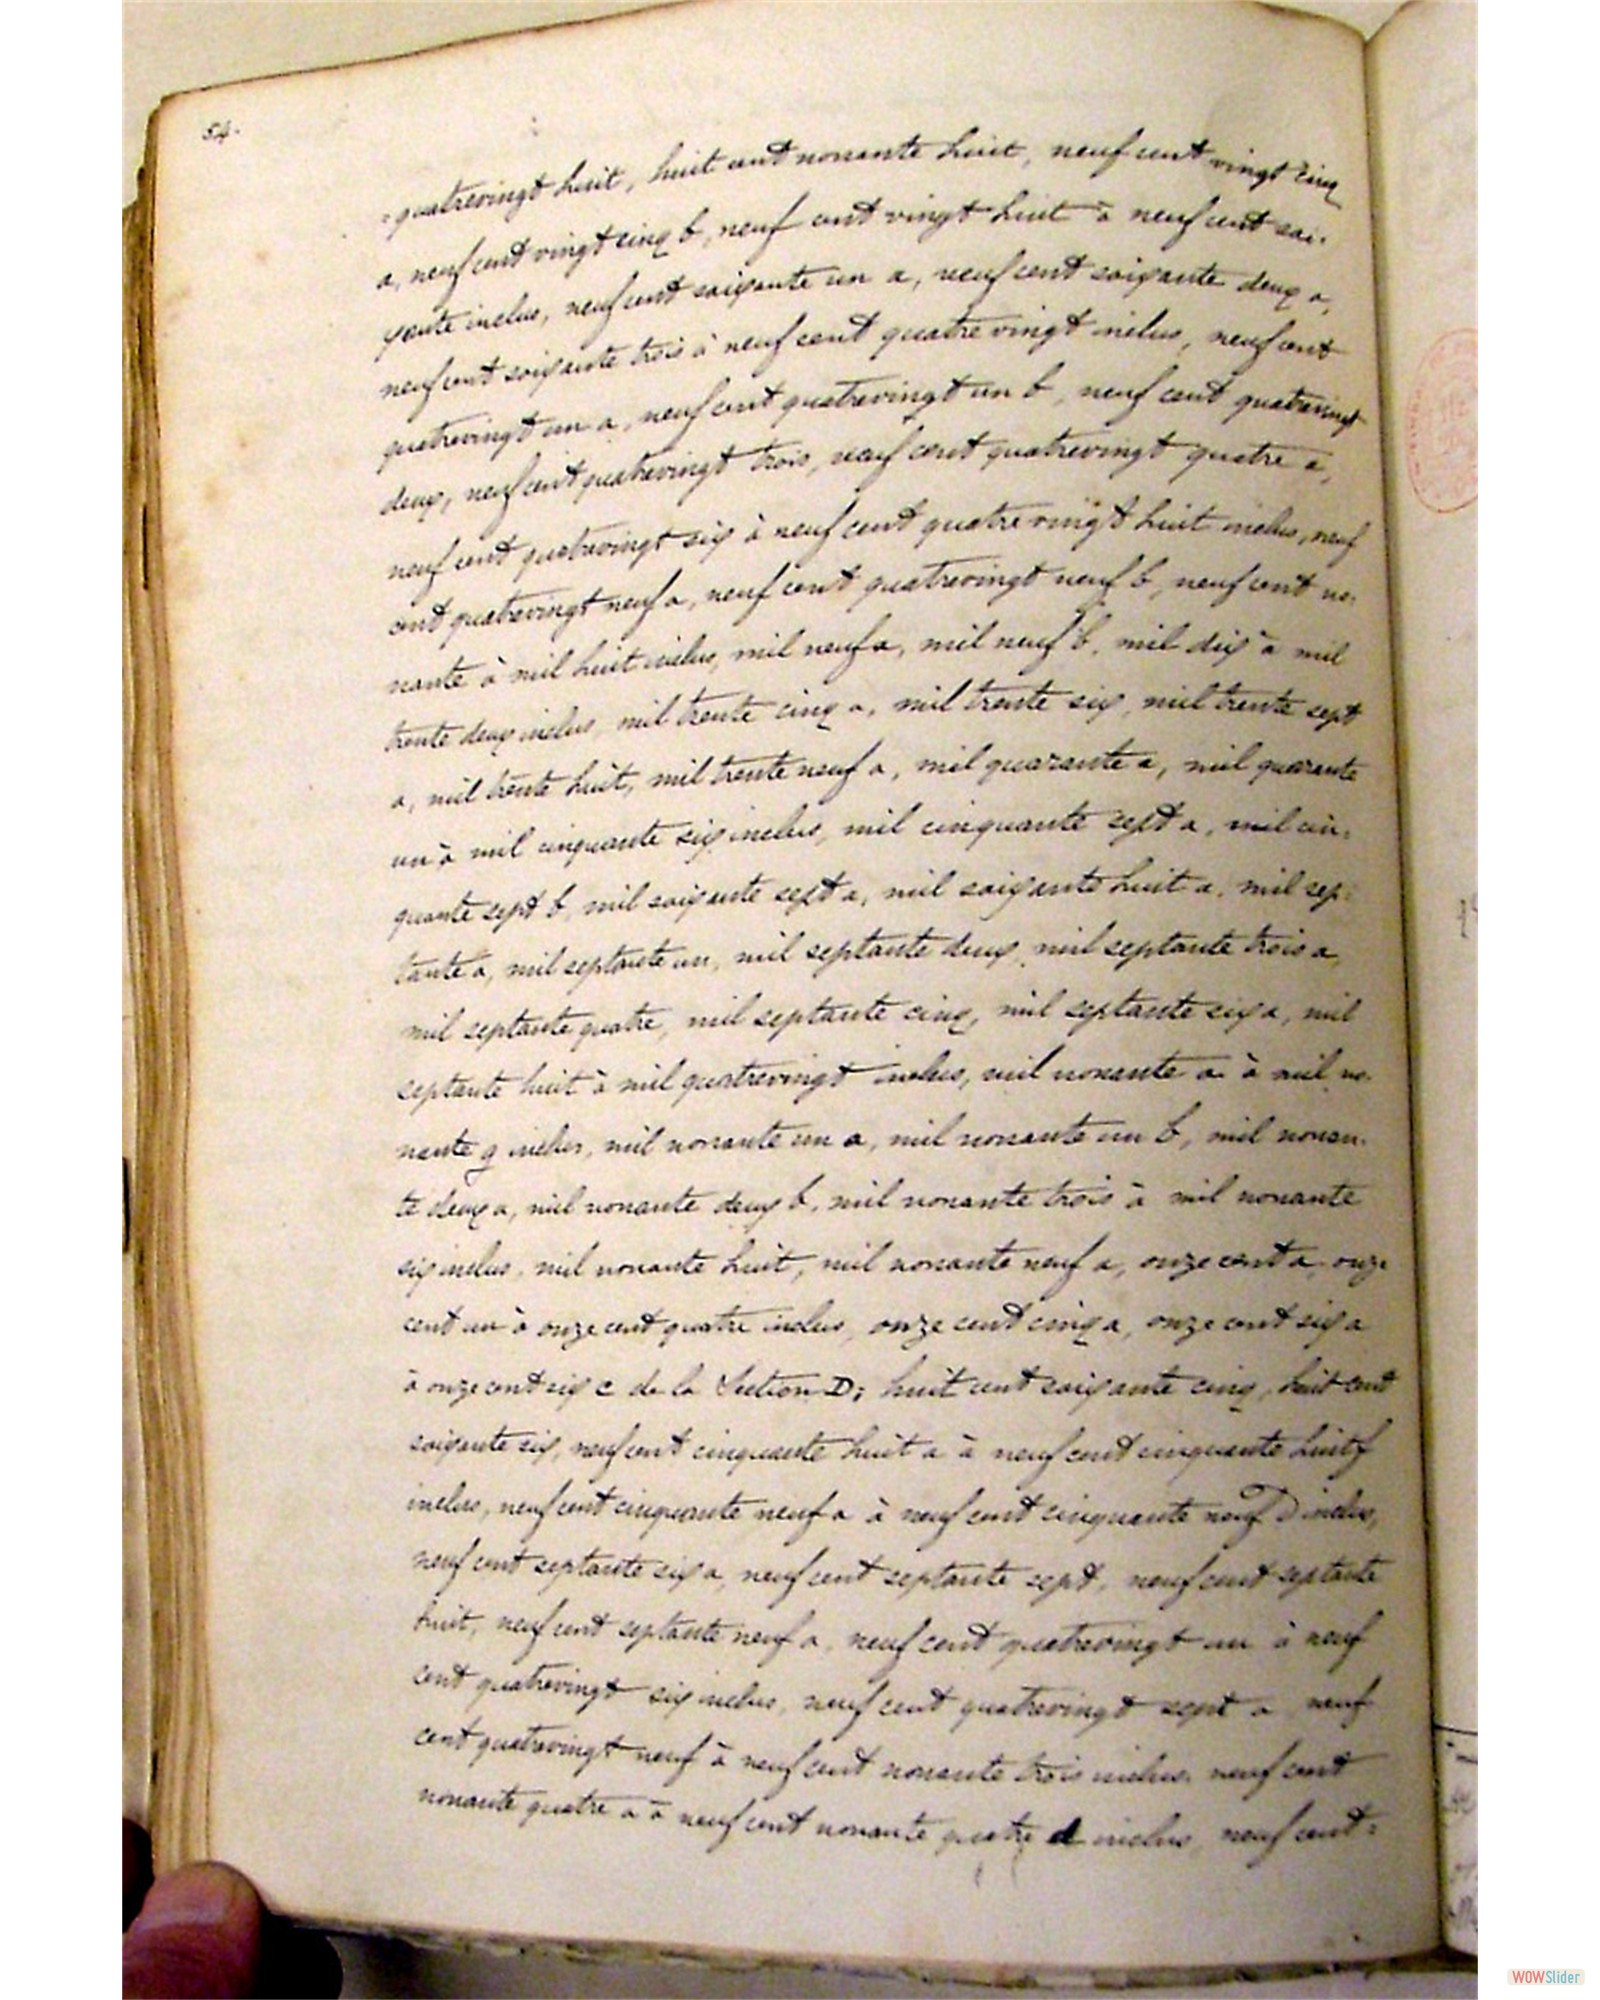 54.
=quatrevingt huit, huit cent nonante huit, neuf cent vingt cinq
a, neuf cent vingt cinq b, neuf cent vingt huit à neuf cent soi-
xante inclus, neuf cent soixante un a, neuf cent soixante deux a,
neuf cent soixante trois à neuf cent quatre vingt inclus, neuf cent
quatrevingt un a, neuf cent quatrevingt un b, neuf cent quatrevingt
deux, neuf cent quatrevingt trois, neuf cent quatrevingt quatre a,
neuf cent quatrevingt six à neuf cent quatre vingt huit inclus, neuf
cent quatrevingt neuf a, neuf cent quatrevingt neuf b, neuf cent no-
nante à mil huit inclus, mil neuf a, mil neuf b, mil dix à mil
trente deux inclus, mil trente cinq a, mil trente six, mil trente sept
a, mil trente huit, mil trente neuf a, mil quarante a, mil quarante
un à mil cinquante six inclus, mil cinquante sept a, mil cin-
quante sept b, mil soixante sept a, mil soixante huit a, mil sep-
tante a, mil septante un, mil septante deux, mil septante trois a,
mil septante quatre, mil septante cinq, mil septante six a, mil
septante huit à mil quatrevingt inclus, mil nonante a à mil no-
nante g inclus, mil nonante un a, mil nonante un b, mil nonan-
te deux a, mil nonante deux b, mil nonante trois à mil nonante
six inclus, mil nonante huit, mil nonante neuf a, onze cent a, onze
cent un à onze cent quatre inclus, onze cent cinq a, onze cent six a
à onze cent six c de la Section D; huit cent soixante cinq, huit cent
soixante six, neuf cent cinquante huit a à neuf cent cinquante huit f
inclus, neuf cent cinquante neuf a à neuf cent cinquante neuf D inclus,
neuf cent septante six a, neuf cent septante sept, neuf cent septante
huit, neuf cent septante neuf a, neuf cent quatrevingt un à neuf
cent quatrevingt six inclus, neuf cent quatrevingt sept a neuf
cent quatrevingt neuf à neuf cent nonante trois inclus, neuf cent
nonante quatre a à neuf cent nonante quatre d inclus, neuf cent=
WOWSlider